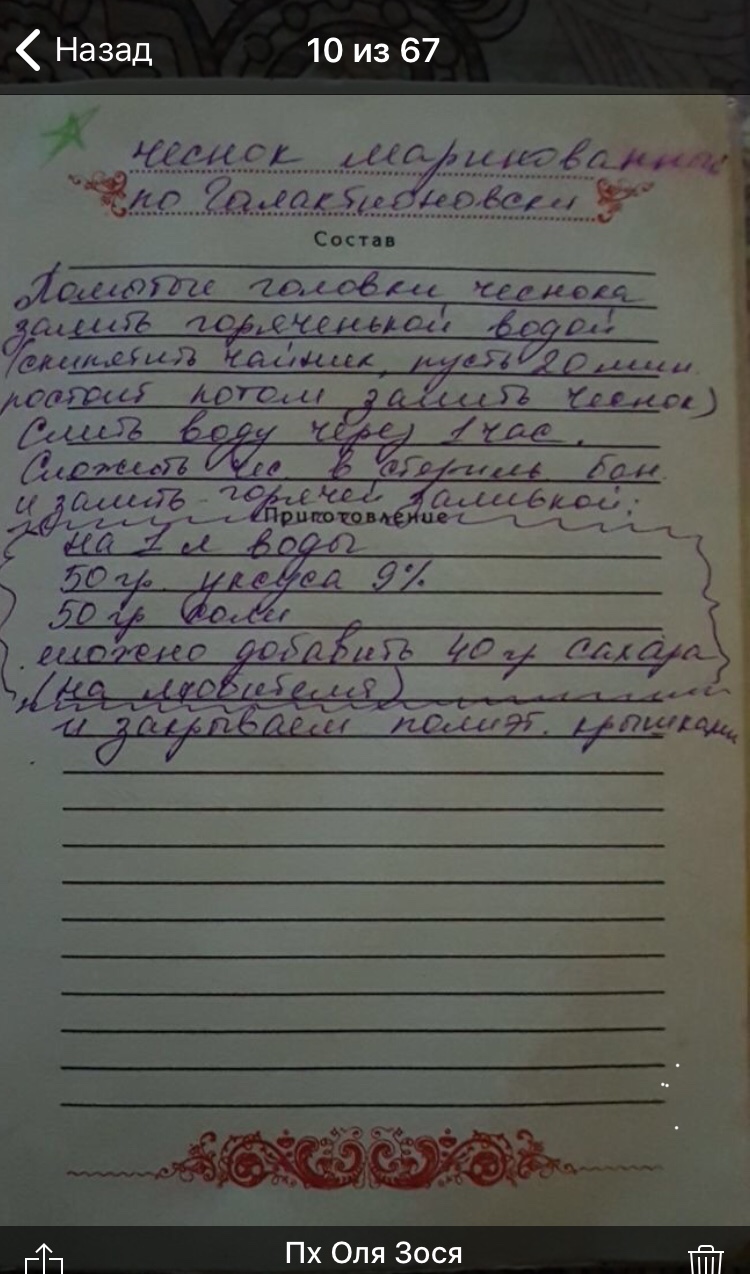 Назад
10 из 67
чеснок маринованный
по Галактионовски
Состав
Помытые головки чеснока
залить горяченькой водой
(скипятить чайник, пусть 20 мин.
постоит потом залить чеснок)
Слить воду через 1 час.
Сложить чес. в стериль. бан.
и залить горячей заливкой:
Приготовление
на 1 л воды
50 гр. уксуса 9%
50 гр соли
можно добавить 40 гр сахара
(на любителя)
и закрываем полиэт. крышками
Пх Оля Зося